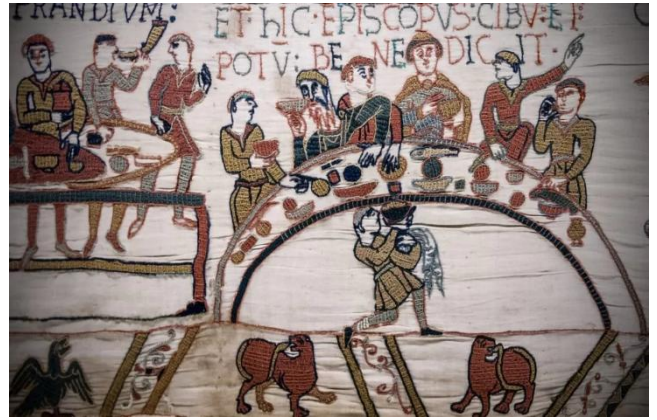 PRANDIVM:
ET·hIC·EPISCOPVS:CIBV:ET·
POTV̄: BE NE DIC IT·